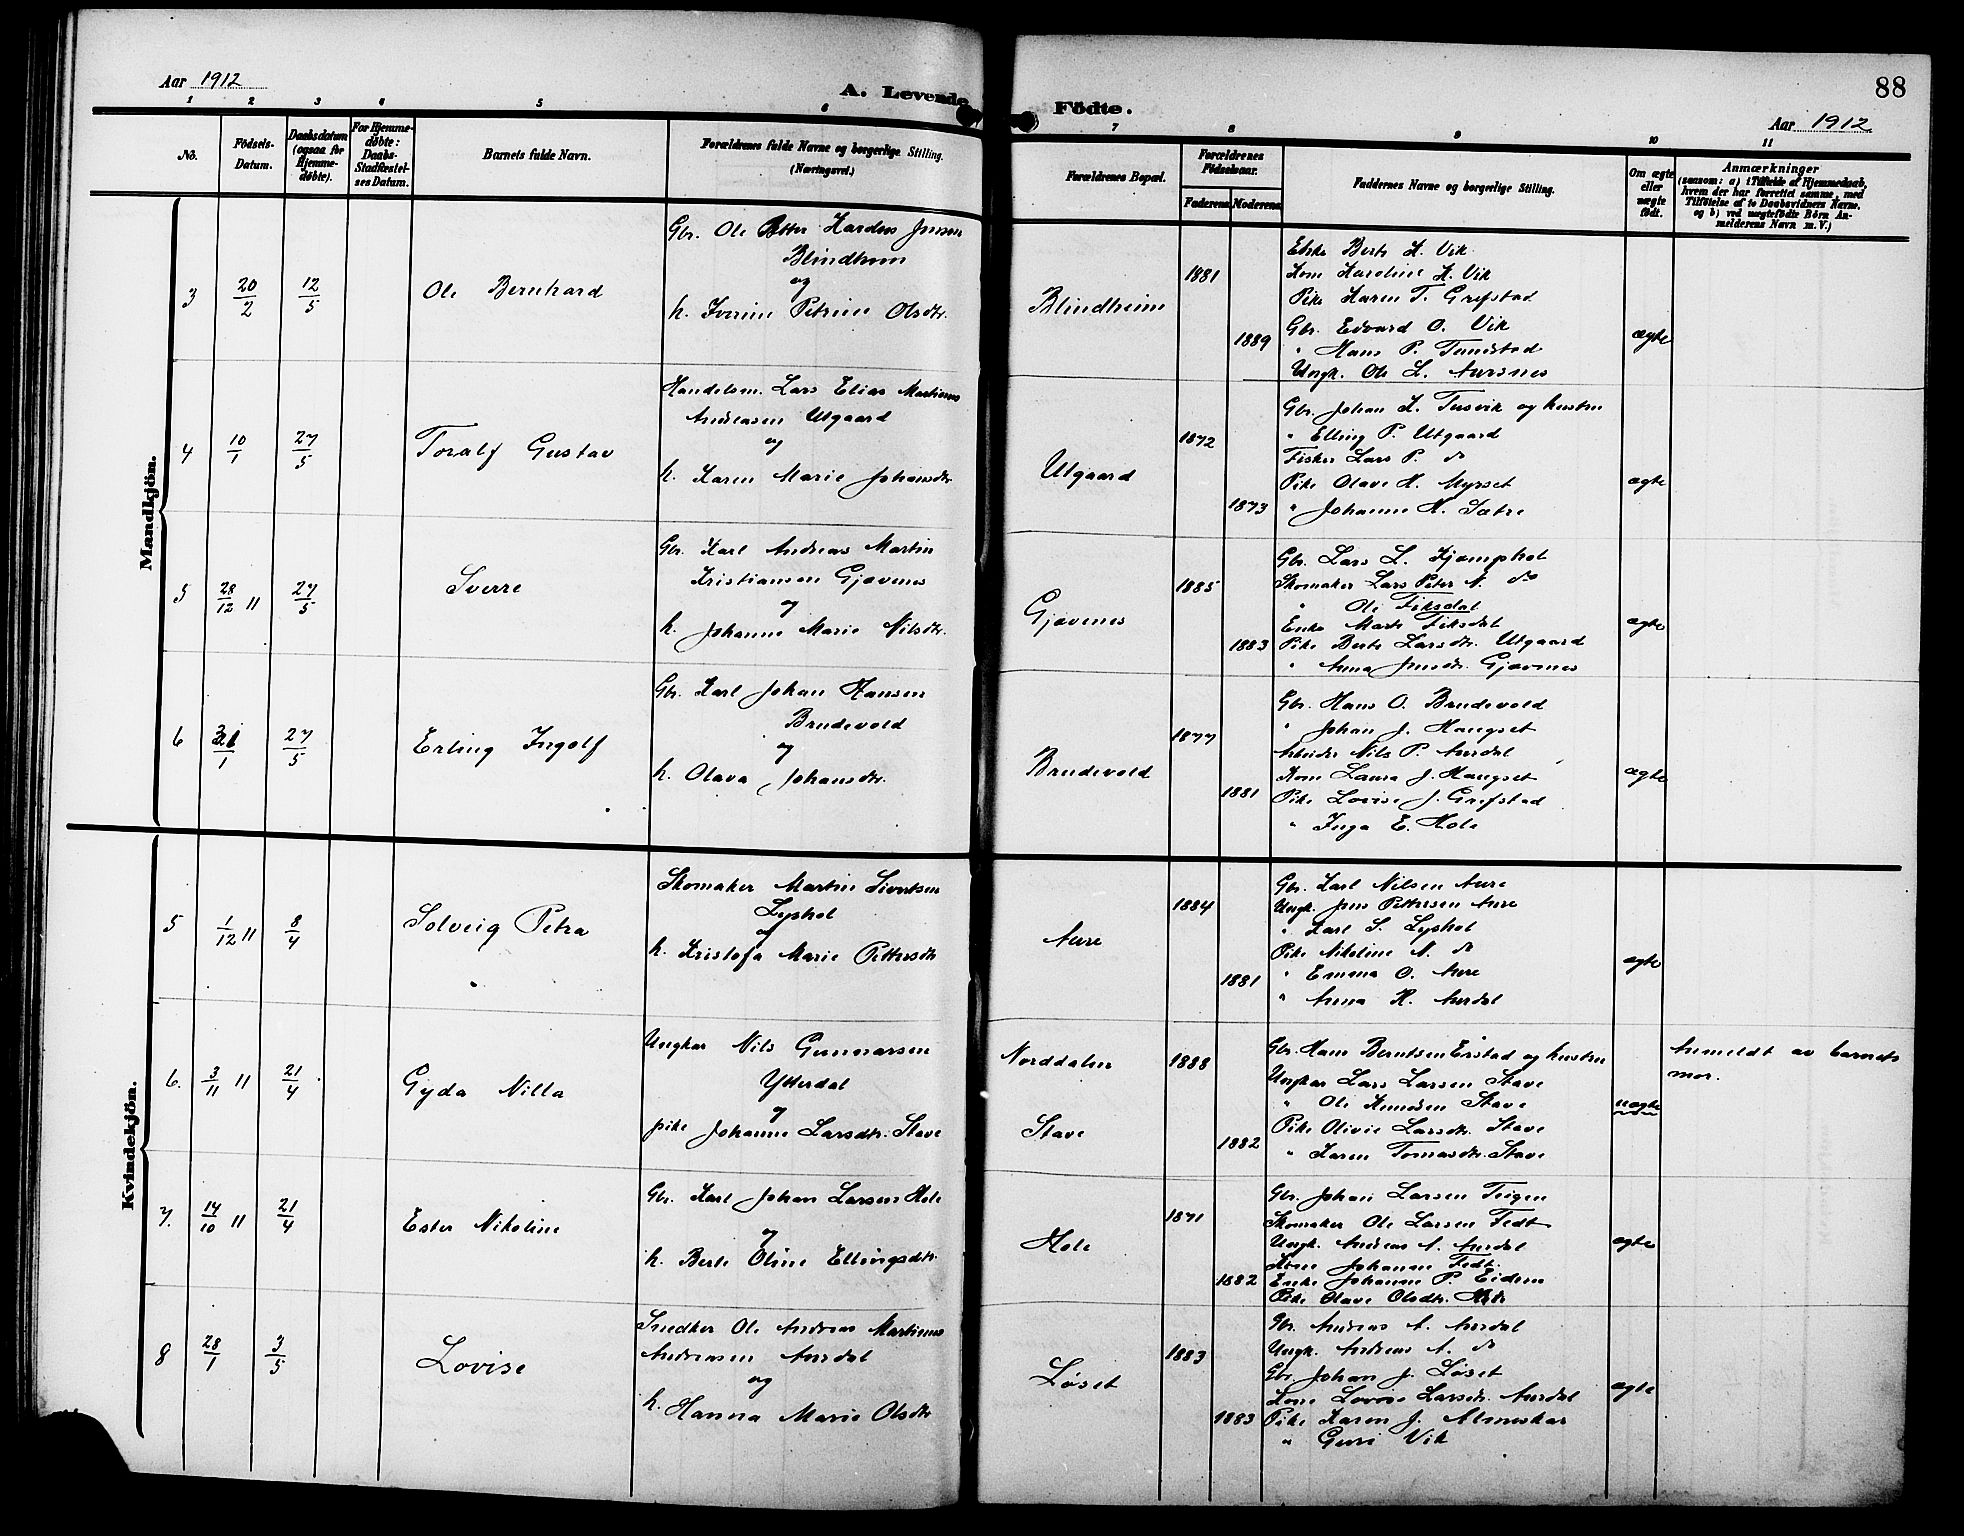 Aar 1912
A. Levende
1 2 3 4 5 6
No.
Födsels-
Datum.
Daabsdatum
(ogsaa for
Hjemme-
døbte).
For Hjemme-
døbte:
Daabs-
Stadfæstel-
ses Datum.
Barnets fulde Navn.
Forældrenes fulde Navne og borgerlige Stilling.
(Næringsvei.)
Mandkjön.
3 20/2 12/5 Ole Bernhard
Gbr. Ole Petter Kardus Jensen
Blindheim
og
h. Iverine Petrine Olsdtr.
4 10/1 27/5 Toralf Gustav
Handelsm. Lars Elias Martinus
Andreasen Utgaard
og
h. Karen Marie Johansdtr.
5 28/12 11 27/5 Sverre
Gbr. Karl Andreas Martin
Kristiansen Gjævenes
og
h. Johanne Marie Nilsdtr.
6 31/1 27/5 Erling Ingolf
Gbr. Karl Johan Hansen
Brudevold
og
h. Olava Johansdtr.
Kvindekjön.
5 1/12 11 8/4 Solveig Petra
Skomaker Martin Sivertsen
Lyshol
og
h. Kristofa Marie Pettersdtr
6. 3/11 11 21/4 Gyda Nilla
Ungkar Nils Gunnarsen
Ytterdal
og
pike Johanne Larsdtr. Stave
7. 14/10 11 21/4 Ester Nikoline
Gbr. Karl Johan Larsen Hole
og
h. Berte Oline Ellingsdtr.
8 28/1 3/5 Lovise
Snedker Ole Andreas Martinus
Andreasen Aurdal
og
h. Hanna Marie Olsdtr
88
Födte.
Aar 1912
7 8 9 10 11
Forældrenes Bopæl.
Forældrenes
Födselsaar.
Faderens Moderens
Faddernes Navne og borgerlige Stilling.
Om ægte
eller
uægte
födt.
Anmærkninger
(saasom: a) i Tilfælde af Hjemmedaab,
hvem der har forrettet samme, med
Tilföielse af to Daabsvidners Navne.
og b) ved uægtefödte Börn An-
melderens Navn m. V.)
Blindheim 1881 1889
Enke Berte K. Vik
Kone Karoline K. Vik
Pike Karen T. Grefstad
Gbr. Edvard O. Vik
" Hans P. Tunstad
Ungk. Ole L. Aursnes
ægte
Utgaard 1872 1873
Gbr. Johan K. Tusvik og hustru
" Elling P. Utgaard
Fisker Lars P. do
Pike Olave H. Myrset
" Johanne H. Sætre
ægte
Gjævenes 1885 1883
Gbr. Lars L. Kjæmphol
Skomaker Lars Peter N. do
" Ole Fiksdal
Enke Marte Fiksdal
Pike Berte Larsdtr. Utgaard
" Anna Jensdtr. Gjævnes
ægte
Brudevold 1877 1881
Gbr. Hans O. Brudevold
" Johan J. Haugset
Arbeider Nils P. Aurdal
Kone Laura J. Haugset
Pike Lovise J. Grefstad
" Inga E. Hole
ægte
Aure 1884 1881
Gbr. Karl Nilsen Aure
Ungk. Jens Pettersen Aure
" Karl S. Lyshol
Pike Nikoline N. do
" Emma O. Aure
" Anna K. Aurdal
ægte
Norddalen 1888
Stave 1882
Gbr. Hans Berntsen Erstad og hustru
Ungkar Lars Larsen Stave
" Ole Knudsen Stave
Pike Olivie Larsdtr. Stave
" Karen Tomasdtr. Stave
uægte
Anmeldt av barnets
mor.
Hole 1871 1882
Gbr. Johan Larsen Teigen
Skomaker Ole Larsen Fedt
Ungk. Andreas A. Aurdal
Kone Johanne Fedt.
Enke Johanne P. Eidem
Pike Olave Olsdtr. Hole
ægte
Løset 1883 1883
Gbr. Andreas A. Aurdal
Ungk. Andreas A. do
Gbr Johan J. Løset
Kone Lovise Larsdtr. Aurdal
Pike Karen J. Almeskar
" Guri Vik
ægte